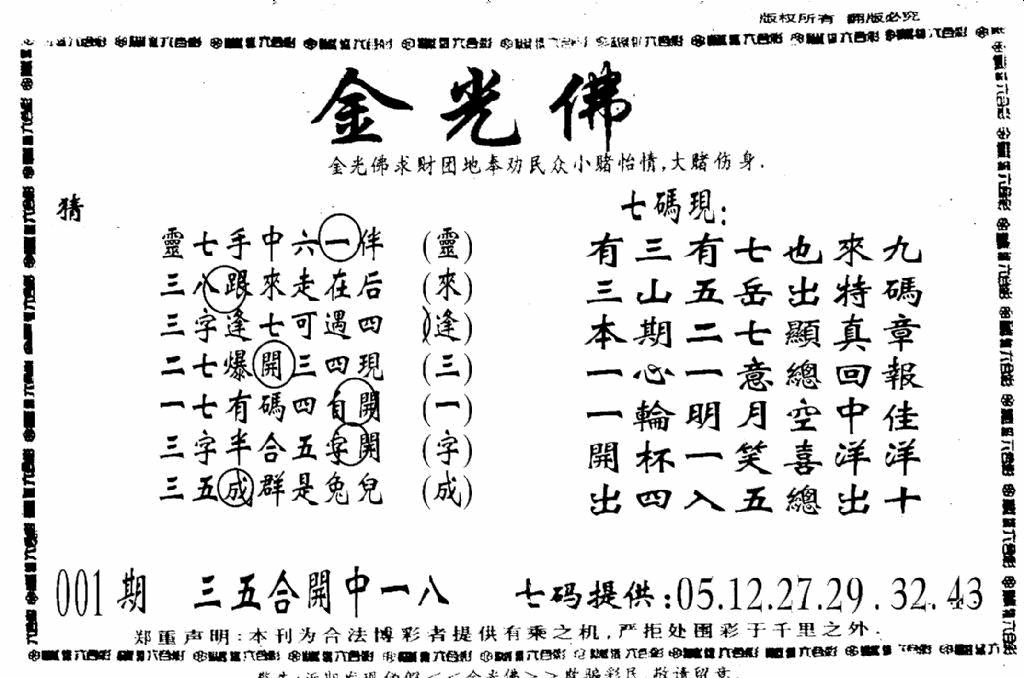 版权所有 翻版必究
金光佛
金光佛求财团地奉劝民众小赌怡情,大赌伤身.
猜
靈七手中六一伴 (靈)
三八跟來走在后 (來)
三字逢七可遇四 (逢)
二七爆開三四現 (三)
一七有碼四自開 (一)
三字半合五字開 (字)
三五成群是兔兒 (成)
七碼現:
有三有七也來九
三山五岳出特碼
本期二七顯真章
一心一意總回報
一輪明月空中佳
開杯一笑喜洋洋
出四入五總出十
001期 三五合開中一八 七码提供:05.12.27.29.32.43
郑重声明:本刊为合法博彩者提供有乘之机,严拒处围彩于千里之外.